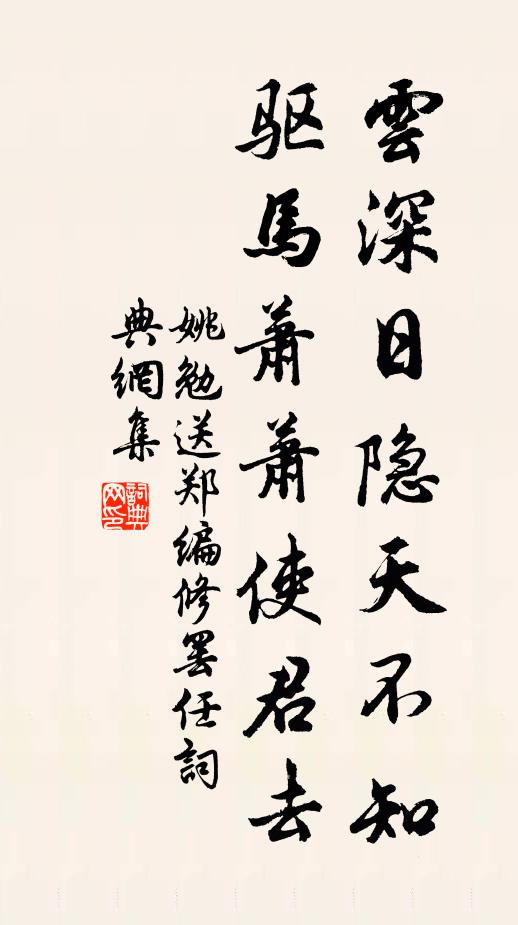 雲深日隐天不知
驱馬蕭蕭使君去
姚勉送郑编修罢任詞
典網集
詞典
网印